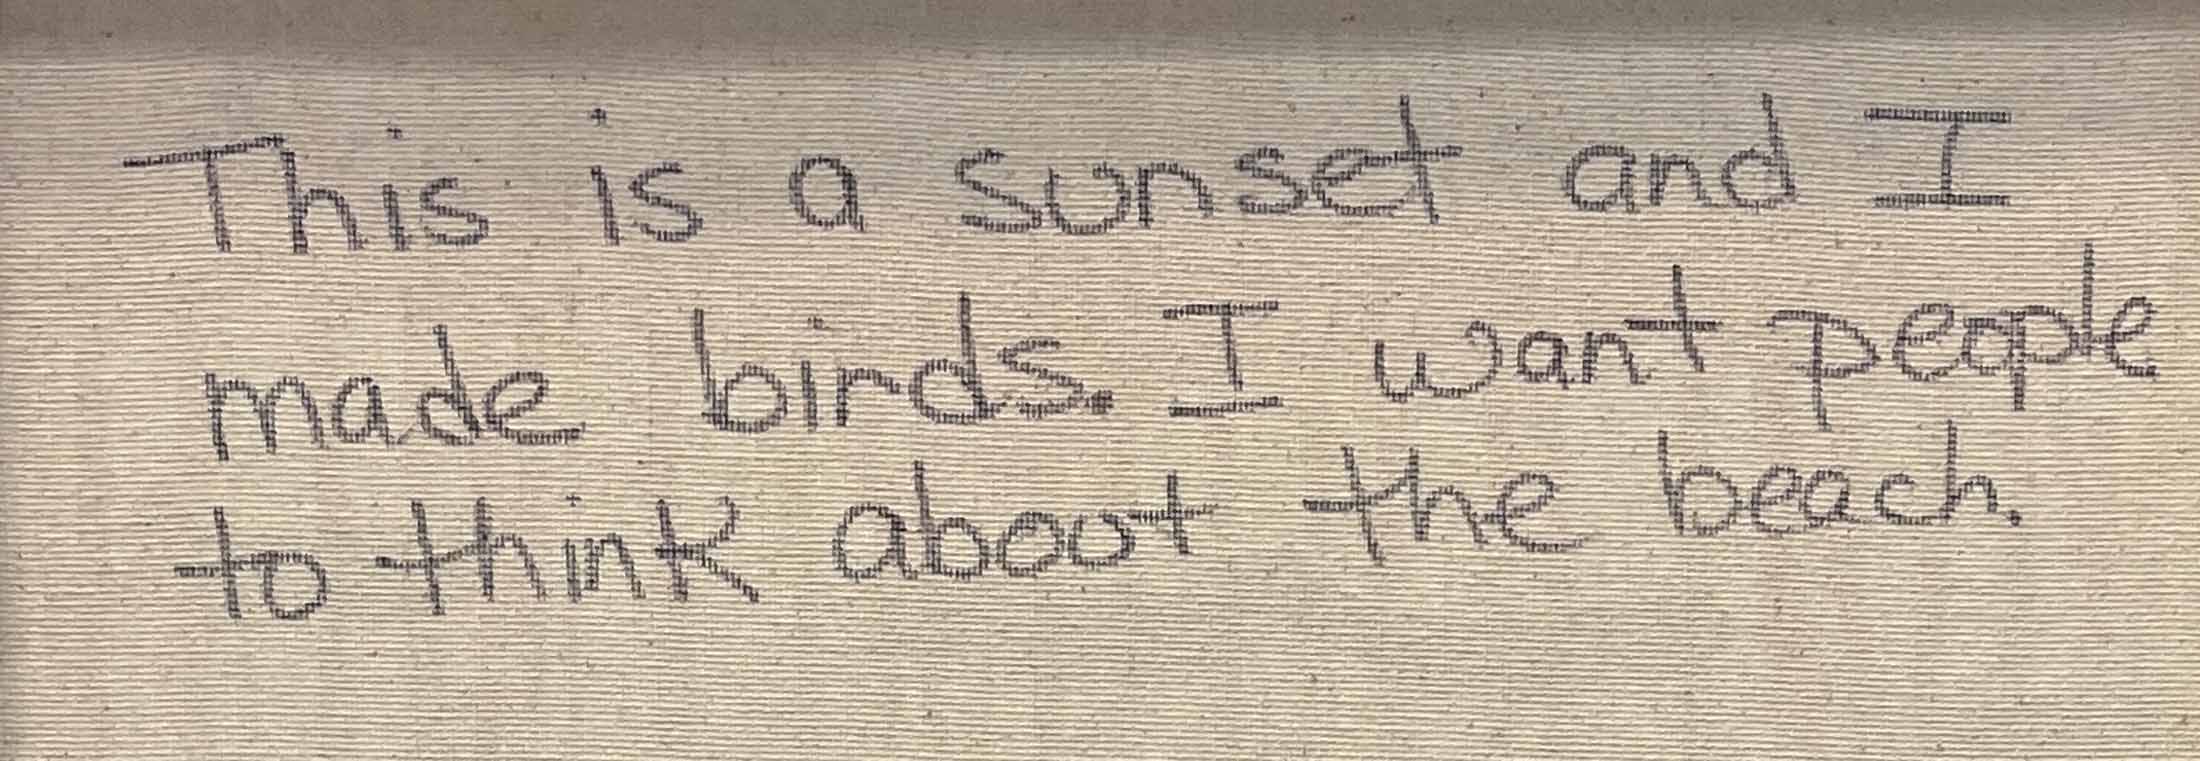 This is a sunset and I
made birds. I want people
to think about the beach.